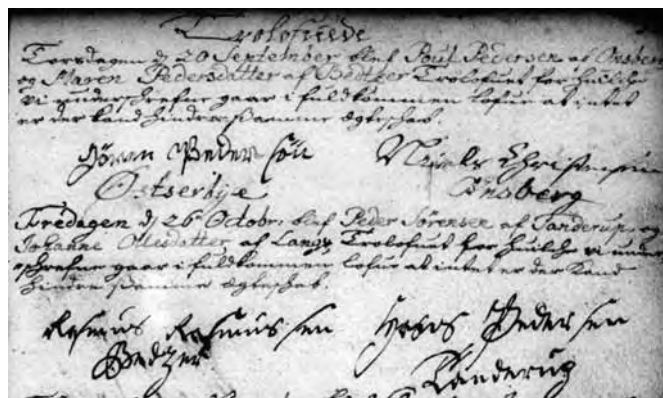 Trolofvede
Torsdagen d 20 September blef Poul Pedersen af Onsberg
og Maren Pedersdatter af Bedtzer Trolofvet for huilche
vi underschrefne gaar i fuldkommen lofve at intet
er der kand hindre samme Egteschab.
Jøran Peder søn Niels Christensen
Østserbye Onsberg
Fredagen d 26 Octobr. blef Peder Sørensen af Tanderup og
Johanne Olesdatter af Lange Trolofvet for huilche vi under
schrefne gaar i fuldkommen lofve at intet er der Kand
hindre samme Egteschab.
Rasmus Rasmus sen Peder sen
Bedzer Tanderup